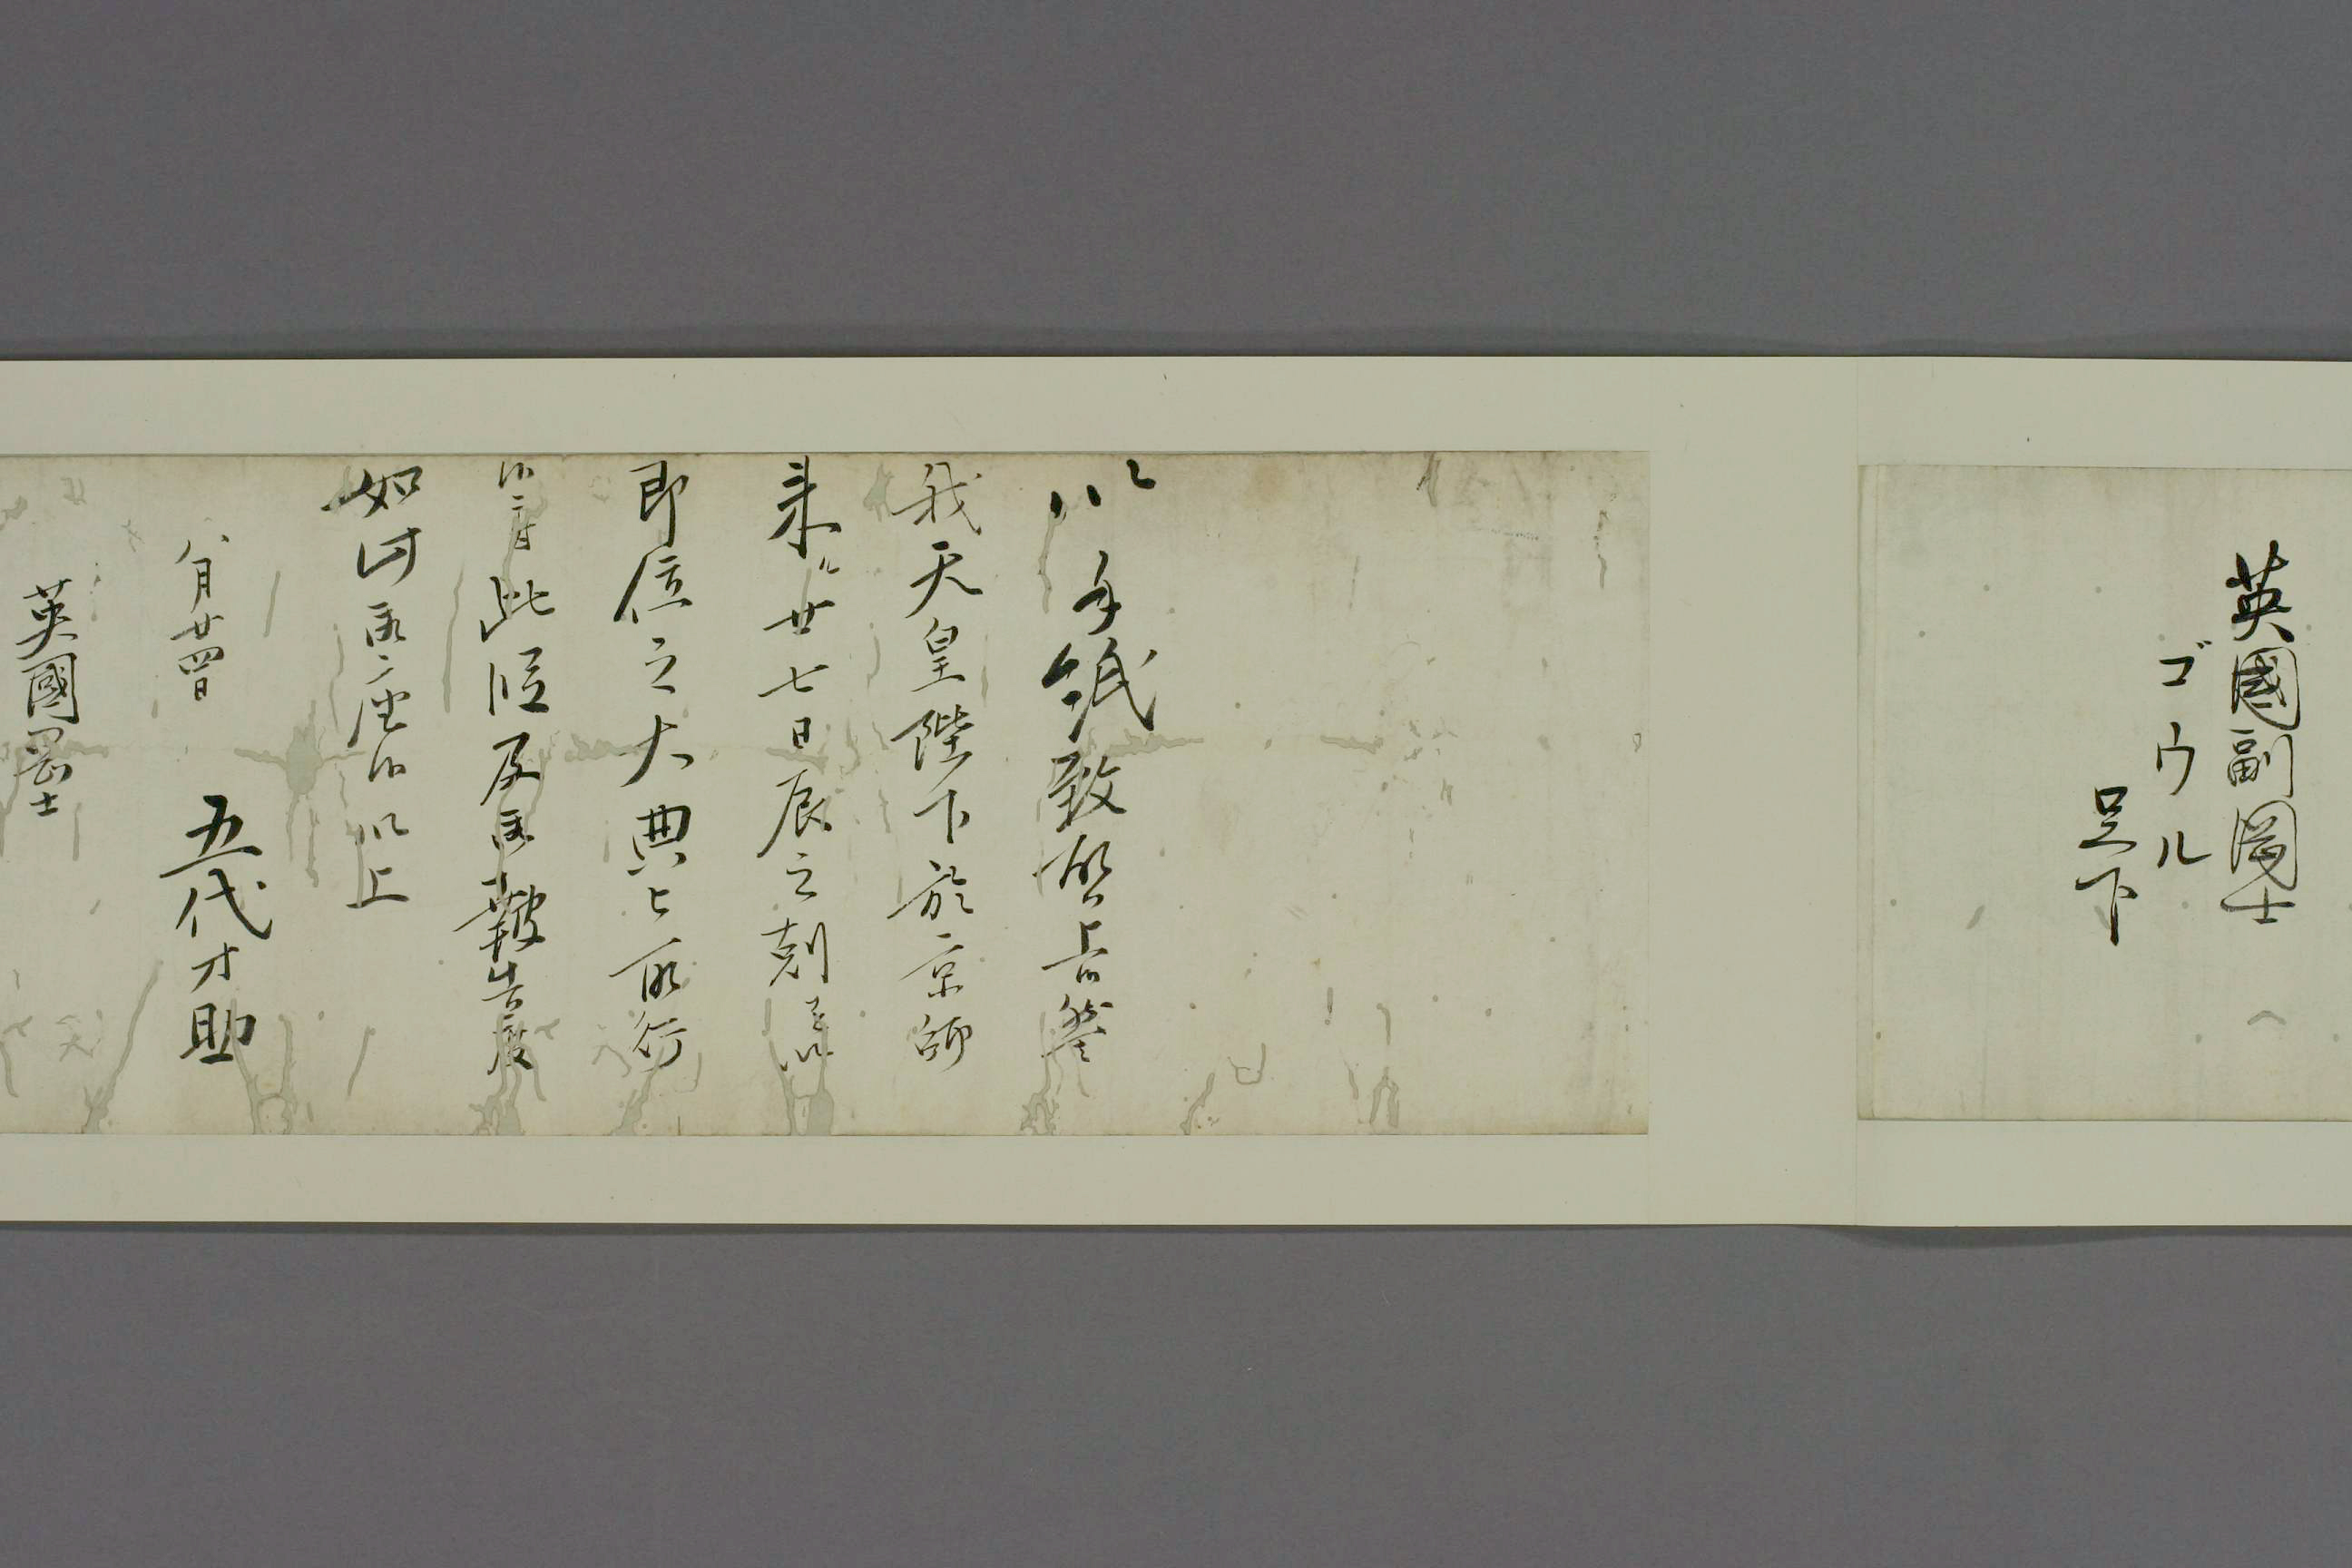 英國副岡士
ゴウル
足下
以手紙致啓上候然者
我天皇陛下於京師
来ル廿七日辰之刻を以
即位之大典被為行
候ニ付此段及御報告度
如此御座候以上
八月廿四日 五代才助
英國岡士